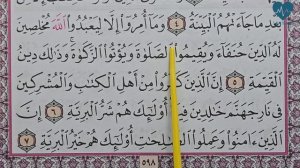 بَعْدِ مَا جَآءَتْهُمُ ٱلْبَيِّنَةُ ٤ وَمَآ أُمِرُوٓا۟ إِلَّا لِيَعْبُدُوا۟ ٱللَّهَ مُخْلِصِينَ
لَهُ ٱلدِّينَ حُنَفَآءَ وَيُقِيمُوا۟ ٱلصَّلَوٰةَ وَيُؤْتُوا۟ ٱلزَّكَوٰةَۚ وَذَٰلِكَ دِينُ
ٱلْقَيِّمَةِ ٥ إِنَّ ٱلَّذِينَ كَفَرُوا۟ مِنْ أَهْلِ ٱلْكِتَٰبِ وَٱلْمُشْرِكِينَ
فِى نَارِ جَهَنَّمَ خَٰلِدِينَ فِيهَآۚ أُو۟لَٰٓئِكَ هُمْ شَرُّ ٱلْبَرِيَّةِ ٦ إِنَّ
ٱلَّذِينَ ءَامَنُوا۟ وَعَمِلُوا۟ ٱلصَّٰلِحَٰتِ أُو۟لَٰٓئِكَ هُمْ خَيْرُ ٱلْبَرِيَّةِ ٧
٥٩٨